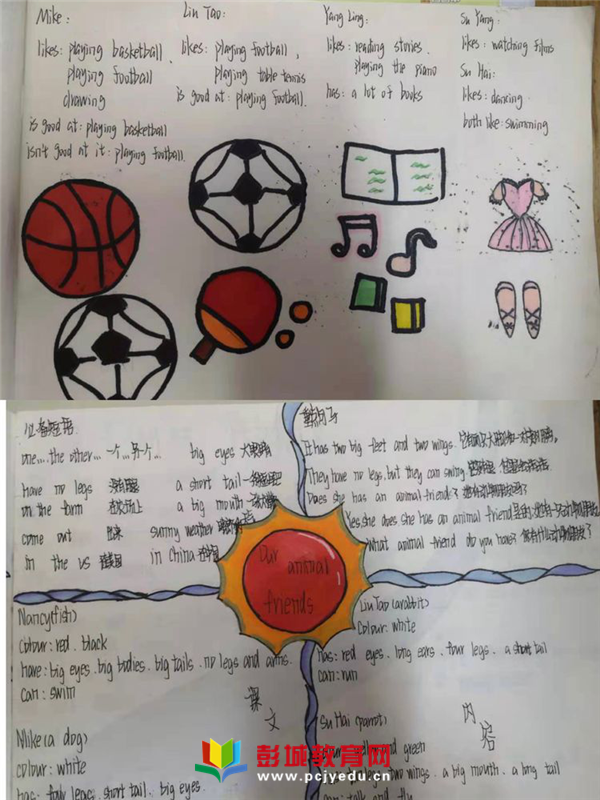 Mike:
likes: playing basketball,
playing football
drawing
is good at: playing basketball
isn't good at it: playing football.
Lin Tao:
likes: playing football,
playing table tennis
is good at: playing football.
Yang Ling:
likes: reading stories.
playing the piano
has: a lot of books
Su Yang:
likes: watching films
Su Hai:
likes: dancing
both like: swimming
必备短语
one...the other... 一个...另一个... big eyes 大眼睛
have no legs a short tail
on the farm 在农场上 a big mouth
come out 出来 sunny weather
in the US 在美国 in China 在中国
重点句子
It has two big feet and two wings.
They have no legs, but they can swing.
Does she has an animal friend?
Yes she does she has an animal friend
What animal friend do you have?
Our animal
friends
Nancy(fish)
colour: red . black
have: big eyes . big bodies . big tails . no legs and arms.
can: swim
Lin Tao (arabbit)
Colour: white
has: red eyes . long ears . four legs . a short tail
can: run
课
文
内
容
Mike (a dog)
colour: white
has: four legs . short tail . big eyes
Su Hai (parrot)
and green
two wings . a big mouth . a long tail
can: talk and fly
彭城教育网
www.pcjyedu.cn